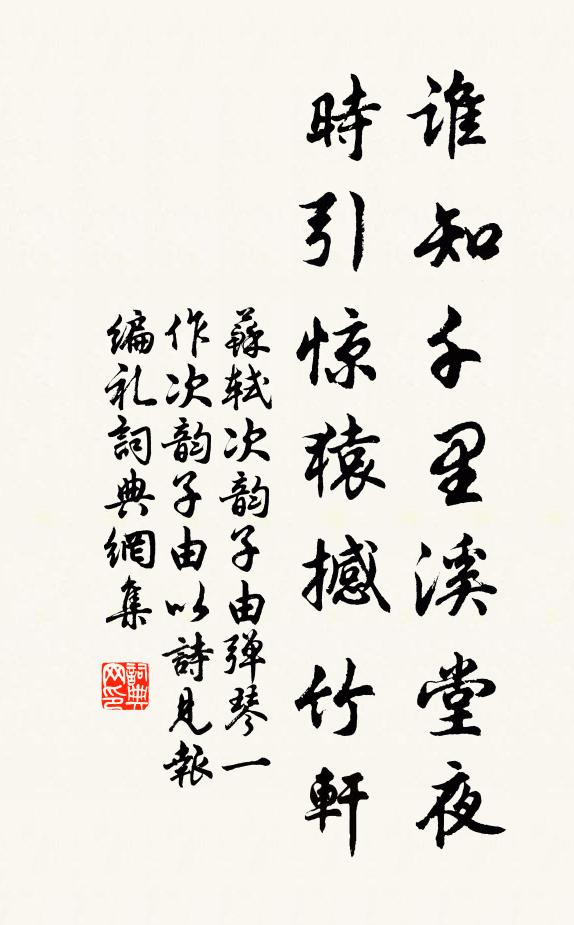 誰知千里溪堂夜
時引惊猿撼竹軒
蘇軾次韵子由弹琴一
作次韵子由以詩見報
編礼詞典網集
詞典
网印